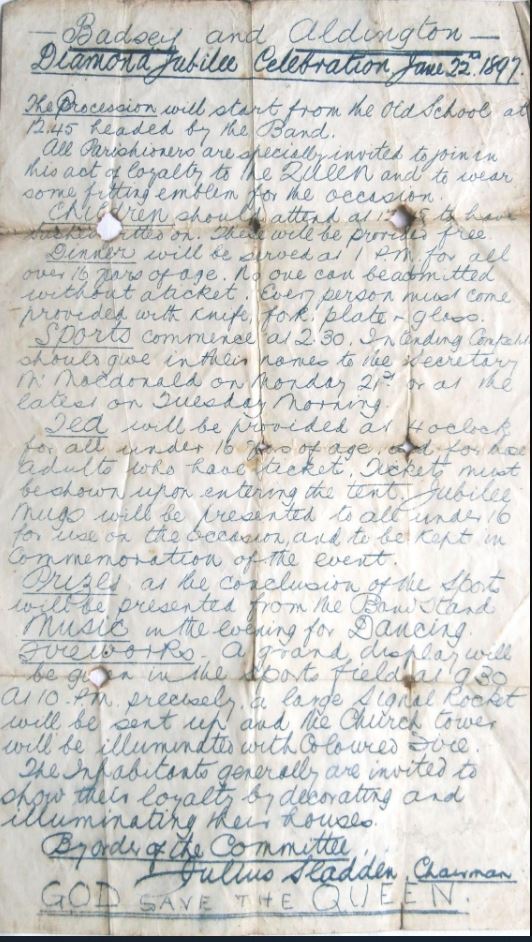 — Badsey and Aldington —
Diamond Jubilee Celebration June 22nd 1897.
The Procession will start from the Old School at
12.45 headed by the Band.
All Parishioners are specially invited to join in
this act of loyalty to the QUEEN and to wear
some fitting emblem for the occasion.
Children should attend at to have
on. These will be provided free.
Dinner will be served at 1 P.M. for all
over 16 years of age. No one can be admitted
without a ticket. Every person must come
provided with knife, fork, plate & glass.
Sports commence at 2.30. Intending
should give in their names to the Secretary
Mr Macdonald on Monday 21st or at the
latest on Tuesday Morning.
Tea will be provided at 4 oclock
for all under 16 years of age, and for
adults who have tickets. Tickets must
be shown upon entering the tent. Jubilee
Mugs will be presented to all under 16
for use on the occasion, and to be kept in
Commemoration of the event.
Prizes at the conclusion of the Sports
will be presented from the Band Stand
Music in the evening for Dancing.
Fireworks. A grand display will
be given in the Sports field at 9.30
At 10. P.M. precisely a large Signal Rocket
will be sent up and the Church tower
will be illuminated with Coloured Fire.
The Inhabitants generally are invited to
show their loyalty by decorating and
illuminating their houses.
By order of the Committee,
Julius Sladden, Chairman
GOD SAVE THE QUEEN.